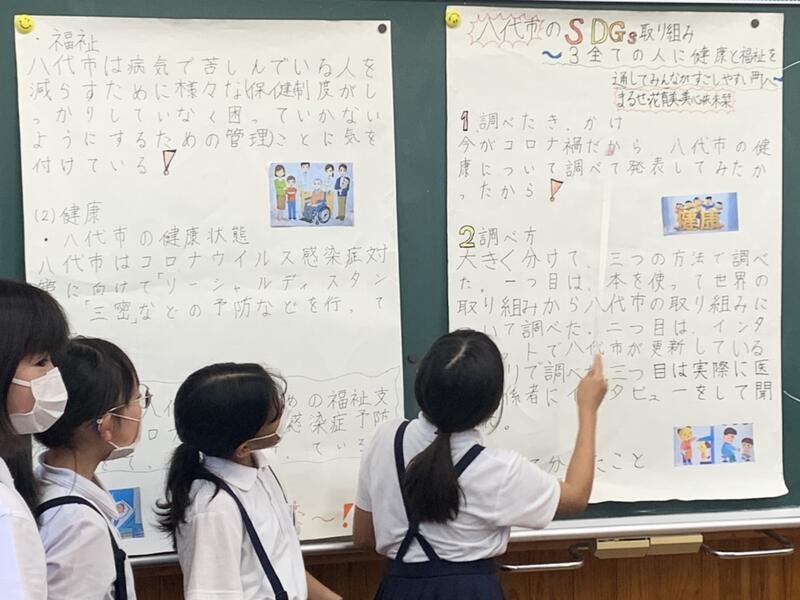 ・福祉
八代市は病気で苦しんでいる人を
減らすために様々な保健制度がし
っかりしていなく困っていかない
ようにするための管理ことに気を
付けている!
(2)健康
・八代市の健康状態
八代市はコロナウイルス感染症対
に向けて「ソーシャルディスタン
「三密」などの予防などを行って
めの福祉支
感染症予防
八代市のSDGs取り組み
〜3全ての人に健康と福祉を
通してみんながすごしやすい町へ
1調べたきっかけ
今がコロナ禍だから 八代市の健
康について調べて発表してみたか
ったから!
健康
2調べ方
大きく分けて、三つの方法で調べ
た。一つ目は、本を使って世界の
取り組みから八代市の取り組みに
いて調べた。二つ目は、インタ
ットで八代市が更新している
リで調べ 三つ目は実際に医
係者にインタビューをして聞
て分 たこと